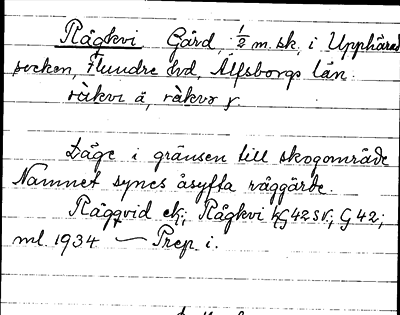 Rågkvi Gård, 1/2 m. sk, i Upphärad
socken, Flundre hd, Älfsborgs län.
råkvi ä, råkvər y.
Läge i gränsen till skogområde
Namnet synes åsyfta råggärde.
Rågqvid ek; Rågkvi KG42SV; G42;
ml. 1934 — Prep. i.